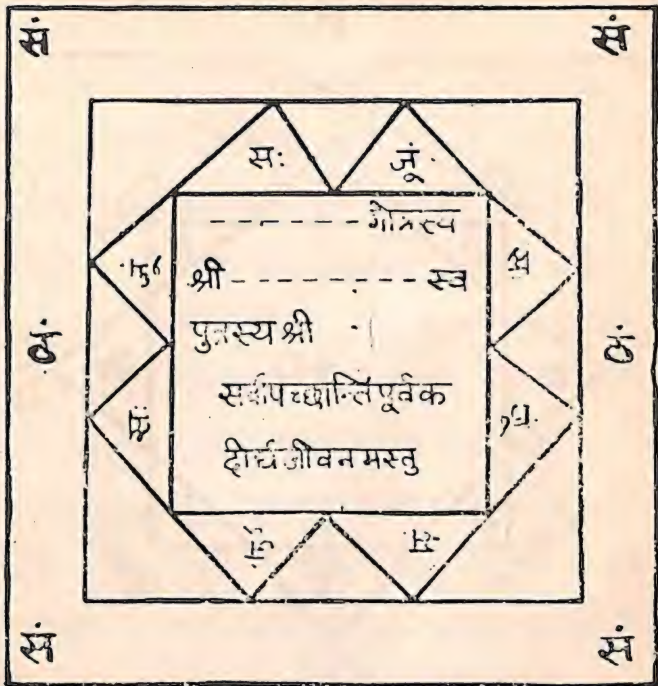 सं सं
सः जूं
---------- गोत्रस्य
श्री ------------ स्य
पुत्रस्य श्री
सर्वापच्छान्तिपूर्वक
दीर्घजीवनमस्तु
जूं सः
सं सं